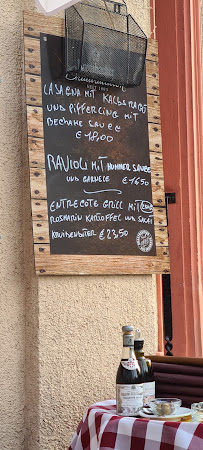 LASAGNA MIT KALBSRAGÙ
UND PFIFFERLING MIT
BECHAME SAUCE
€ 18,00
RAVIOLI MIT HUMMER SAUCE
UND GARNELE € 16,50
ENTRECOTE GRILL MIT
ROSMARIN KARTOFFEL UND SALAT
KRÄUTERBUTER € 23,50